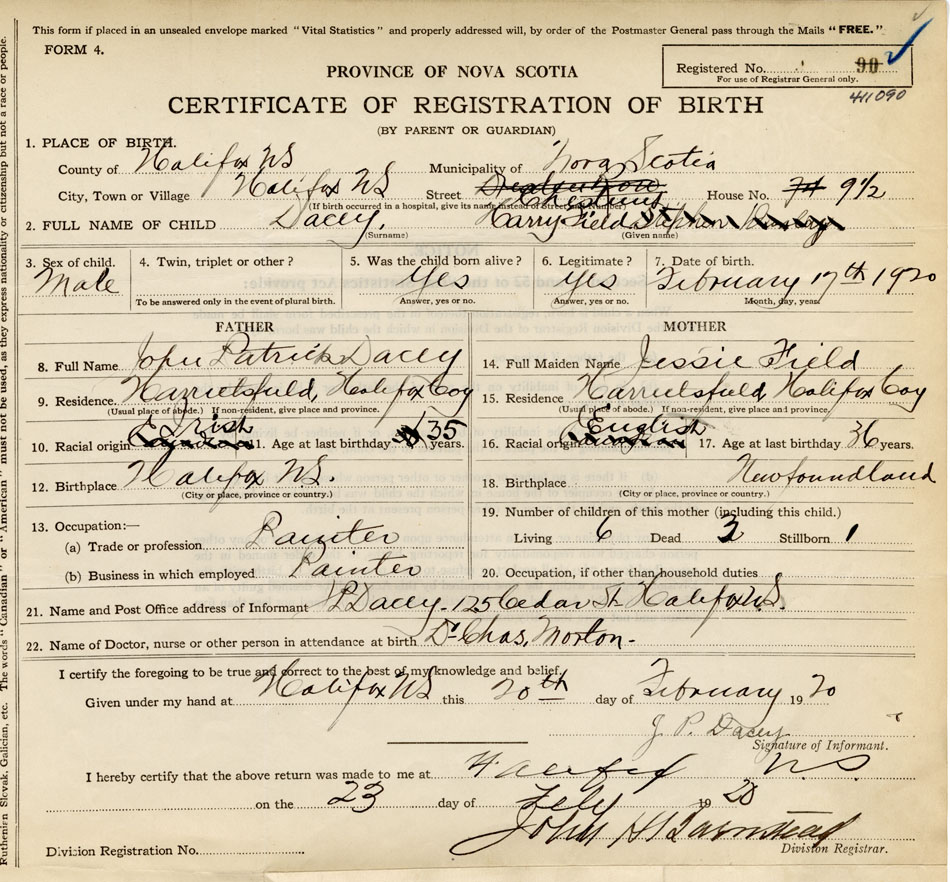 This form if placed in an unsealed envelope marked "Vital Statistics" and properly addressed will, by order of the Postmaster General pass through the Mails "FREE."
FORM 4.
PROVINCE OF NOVA SCOTIA
Registered No. 90
For use of Registrar General only.
411090
CERTIFICATE OF REGISTRATION OF BIRTH
(BY PARENT OR GUARDIAN)
1. PLACE OF BIRTH.
County of Halifax NS Municipality of Nova Scotia
City, Town or Village Halifax NS Street Chestnut House No. 74 9½
(If birth occurred in a hospital, give its name instead of Street and Number)
2. FULL NAME OF CHILD Dacey, Harry Field Stephen
(Surname) (Given name)
3. Sex of child. 4. Twin, triplet or other? 5. Was the child born alive? 6. Legitimate? 7. Date of birth.
Male Yes Yes February 17th 1920
To be answered only in the event of plural birth. Answer, yes or no. Answer, yes or no. Month, day, year.
FATHER
8. Full Name John Patrick Dacey
9. Residence Harrietsfield, Halifax Coy
(Usual place of abode.) If non-resident, give place and province.
10. Racial origin Irish 11. Age at last birthday 35 years.
12. Birthplace Halifax N.S.
(City or place, province or country.)
13. Occupation:—
(a) Trade or profession Painter
(b) Business in which employed Painter
MOTHER
14. Full Maiden Name Jessie Field
15. Residence Harrietsfield, Halifax Coy
(Usual place of abode.) If non-resident, give place and province.
16. Racial origin English 17. Age at last birthday 36 years.
18. Birthplace Newfoundland
(City or place, province or country.)
19. Number of children of this mother (including this child.)
Living 6 Dead Stillborn 1
20. Occupation, if other than household duties
21. Name and Post Office address of Informant JP Dacey - 125 Cedar St. Halifax N.S.
22. Name of Doctor, nurse or other person in attendance at birth Dr Chas, Morton -
I certify the foregoing to be true and correct to the best of my knowledge and belief,
Given under my hand at Halifax NS this 20th day of February 1920
J. P. Dacey
Signature of Informant.
I hereby certify that the above return was made to me at Halifax N S
on the 23 day of Feby 1920
John H Barnstead
Division Registrar.
Division Registration No.
Ruthenian Slovak, Galician, etc. The words "Canadian" or "American" must not be used, as they express nationality or citizenship but not a race or people.